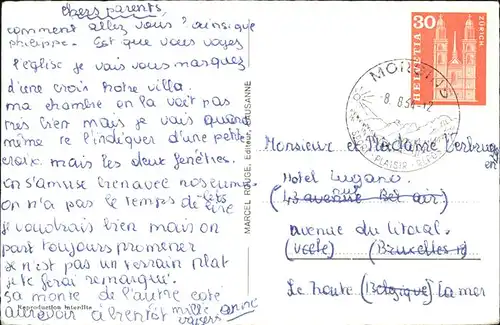 chers parents,
comment allez vous? ainsique
philippe. Est que vous voyes
l'eglise je vais vous marquez
d'une croix notre villa.
ma chambre on la voit pas
très bien mais je vais quand
même re l'indiquer d'une petite
croix mais les deux fenêtres.
on s'amuse bien avec nos
on n'a pas le temps de lire
je voudrais bien mais on
part toujours promener
se n'est pas un terrain plat
je te ferai remarqué.
sa monte de l'autre coté
aurevoir a bientôt mille baisers
anne
Reproduction interdite
MARCEL ROUGE, Editeur, LAUSANNE
30
HELVETIA
ZÜRICH
MORGINS
-8. 8 12
PLAISIR
Monsieur et Madame
Hotel Lugano.
(43 avenue Bel air)
avenue du Litoral.
(Uccle) (Bruxelles 18)
Le (Belgique) La mer